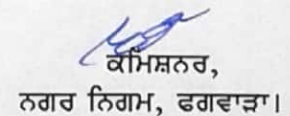 ਕਮਿਸ਼ਨਰ,
ਨਗਰ ਨਿਗਮ, ਫਗਵਾੜਾ।